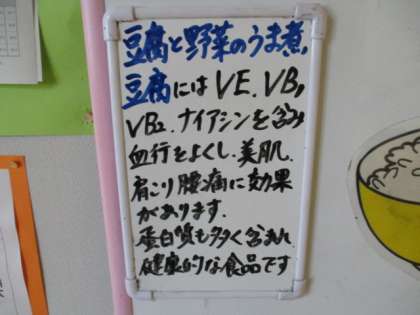 豆腐と野菜のうま煮,
豆腐にはVE.VB₁
VB₂.ナイアシンを含み
血行をよくし.美肌.
肩こり腰痛に効果
があります.
蛋白質も多く含まれ
健康的な食品です